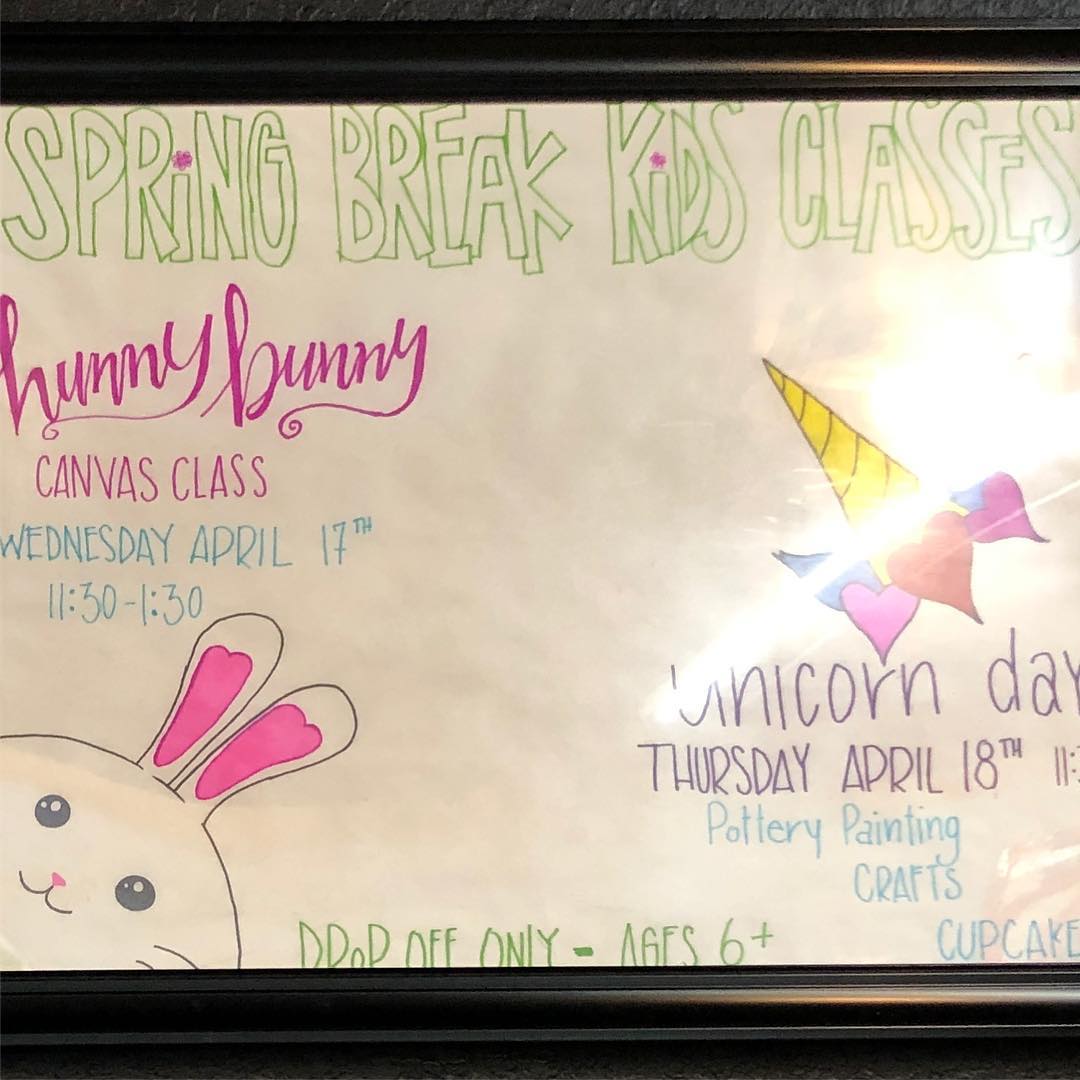 SPRING BREAK KIDS CLASSES
hunny bunny
CANVAS CLASS
WEDNESDAY APRIL 17TH
11:30-1:30
Unicorn day
THURSDAY APRIL 18TH
Pottery Painting
CRAFTS
CUPCAKE
DROP OFF ONLY - AGES 6+